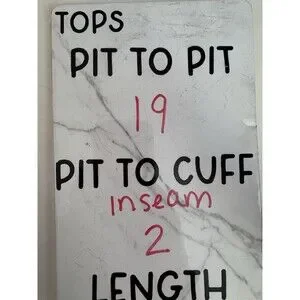 TOPS
PIT TO PIT
19
PIT TO CUFF
Inseam
2
LENGTH